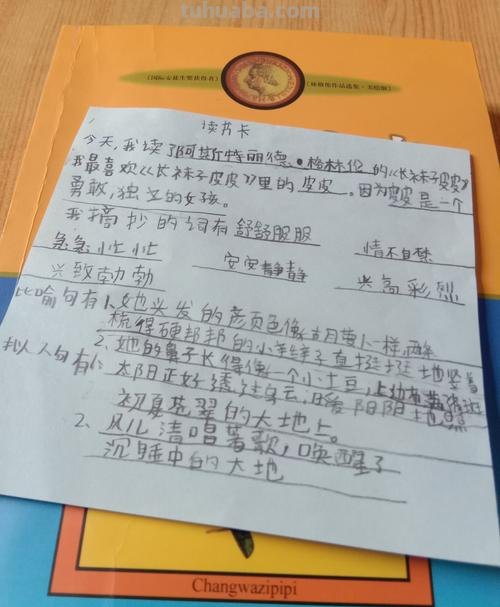 tuhuaba.com
(国际安徒生奖获得者)
(林格伦作品选集·美绘版)
读书卡
今天,我读了阿斯特丽德·格林伦的《长袜子皮皮》
我最喜欢《长袜子皮皮》里的皮皮。因为皮皮是一个
勇敢,独立的女孩。
我摘抄的词有舒舒服服
急急忙忙 安安静静 情不自禁
兴致勃勃 兴高彩烈
比喻句有1、她头发的颜色像胡萝卜一样,两条
梳得硬邦邦的小辫子直挺挺地竖着
2、她的鼻子长得像一个小土豆,上边布满
拟人句有1、太阳正好透过乌云,暖阳阳地
初夏苍翠的大地上。
2、风儿清唱着歌,唤醒了
沉睡中的大地
Changwazipipi